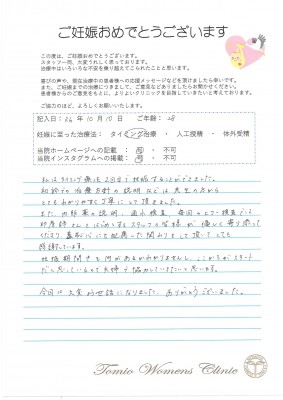 ご妊娠おめでとうございます
この度は、ご妊娠おめでとうございます。
スタッフ一同、大変うれしく思っております。
治療中はいろいろな不安を乗り越えてこられたことと思います。
喜びの声や、現在治療中の患者様への応援メッセージなどを頂けましたら幸いです。
また、ご妊娠までの治療につきまして、ご意見などありましたらお聞かせください。
患者様からのご意見をもとに、よりよいクリニックを目指していきたいと考えております。
ご協力のほど、よろしくお願いいたします。
記入日: 24年10月10日 ご年齢: 28
妊娠に至った治療法: タイミング治療 ・ 人工授精 ・ 体外受精
当院ホームページへの記載: 可 ・ 不可
当院インスタグラムへの掲載: 可 ・ 不可
私はタイミング療法2回目で妊娠することができました。
初診での治療方針の説明などは先生の方から
とてもわかりやすく丁寧にして頂きました。
また、内服薬の説明、通水検査、毎回のエコー検査でも
看護師さんをはじめとするスタッフの皆様が優しく寄り添って
くださり、最初から配慮した関わりをして頂いてとても
感謝しています。
妊娠期間中も何があるかわかりませんし、ここからがスタート
だと思っているので夫婦で協力していきたいと思います。
今回は大変お世話になりました。ありがとうございました。
Tomio Womens Clinic